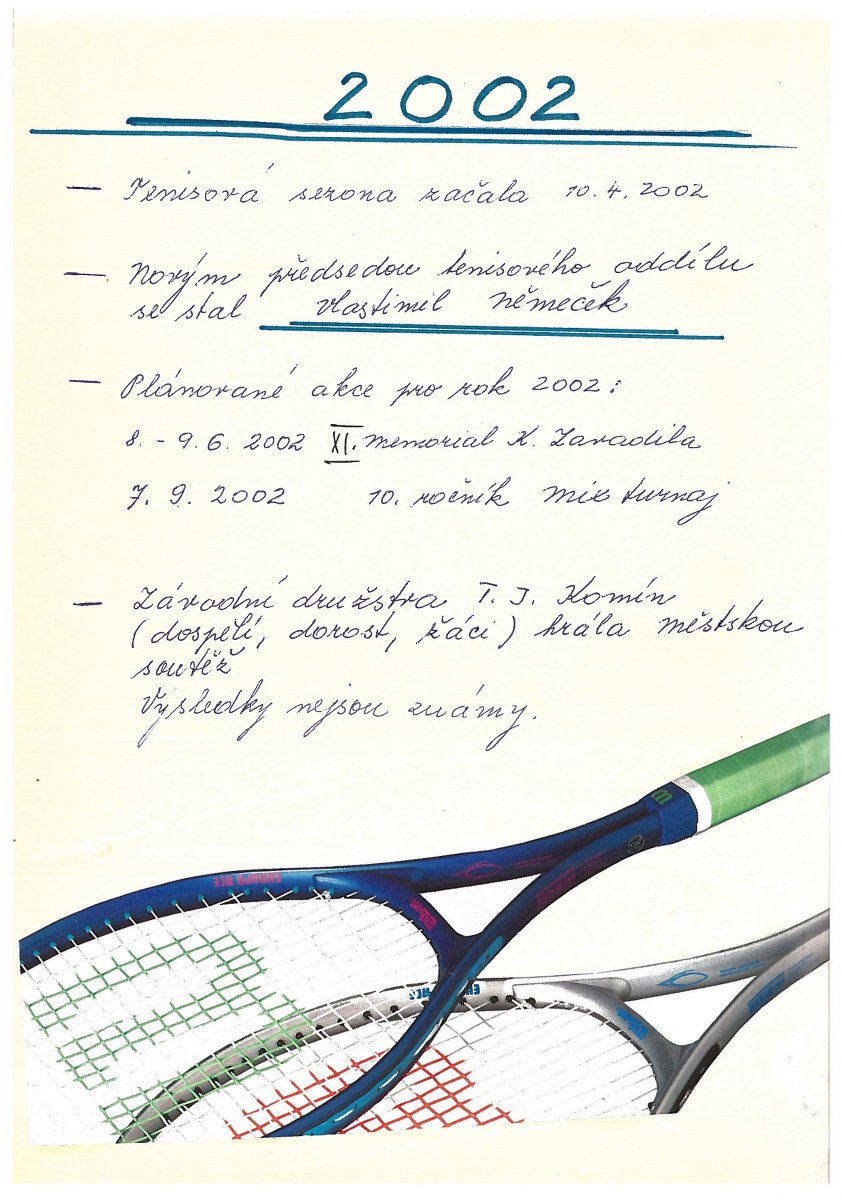 2002
— Tenisová sezona začala 10.4.2002
— Novým předsedou tenisového oddílu
se stal Vlastimil Němeček
— Plánované akce pro rok 2002:
8. - 9.6. 2002 XI. memorial K. Zavadila
7. 9. 2002 10. ročník mix turnaj
— Závodní družstva T. J. Komín
(dospělí, dorost, žáci) hrála městskou
soutěž
Výsledky nejsou známy.
EUROPE ACE
Wilson
Wilson